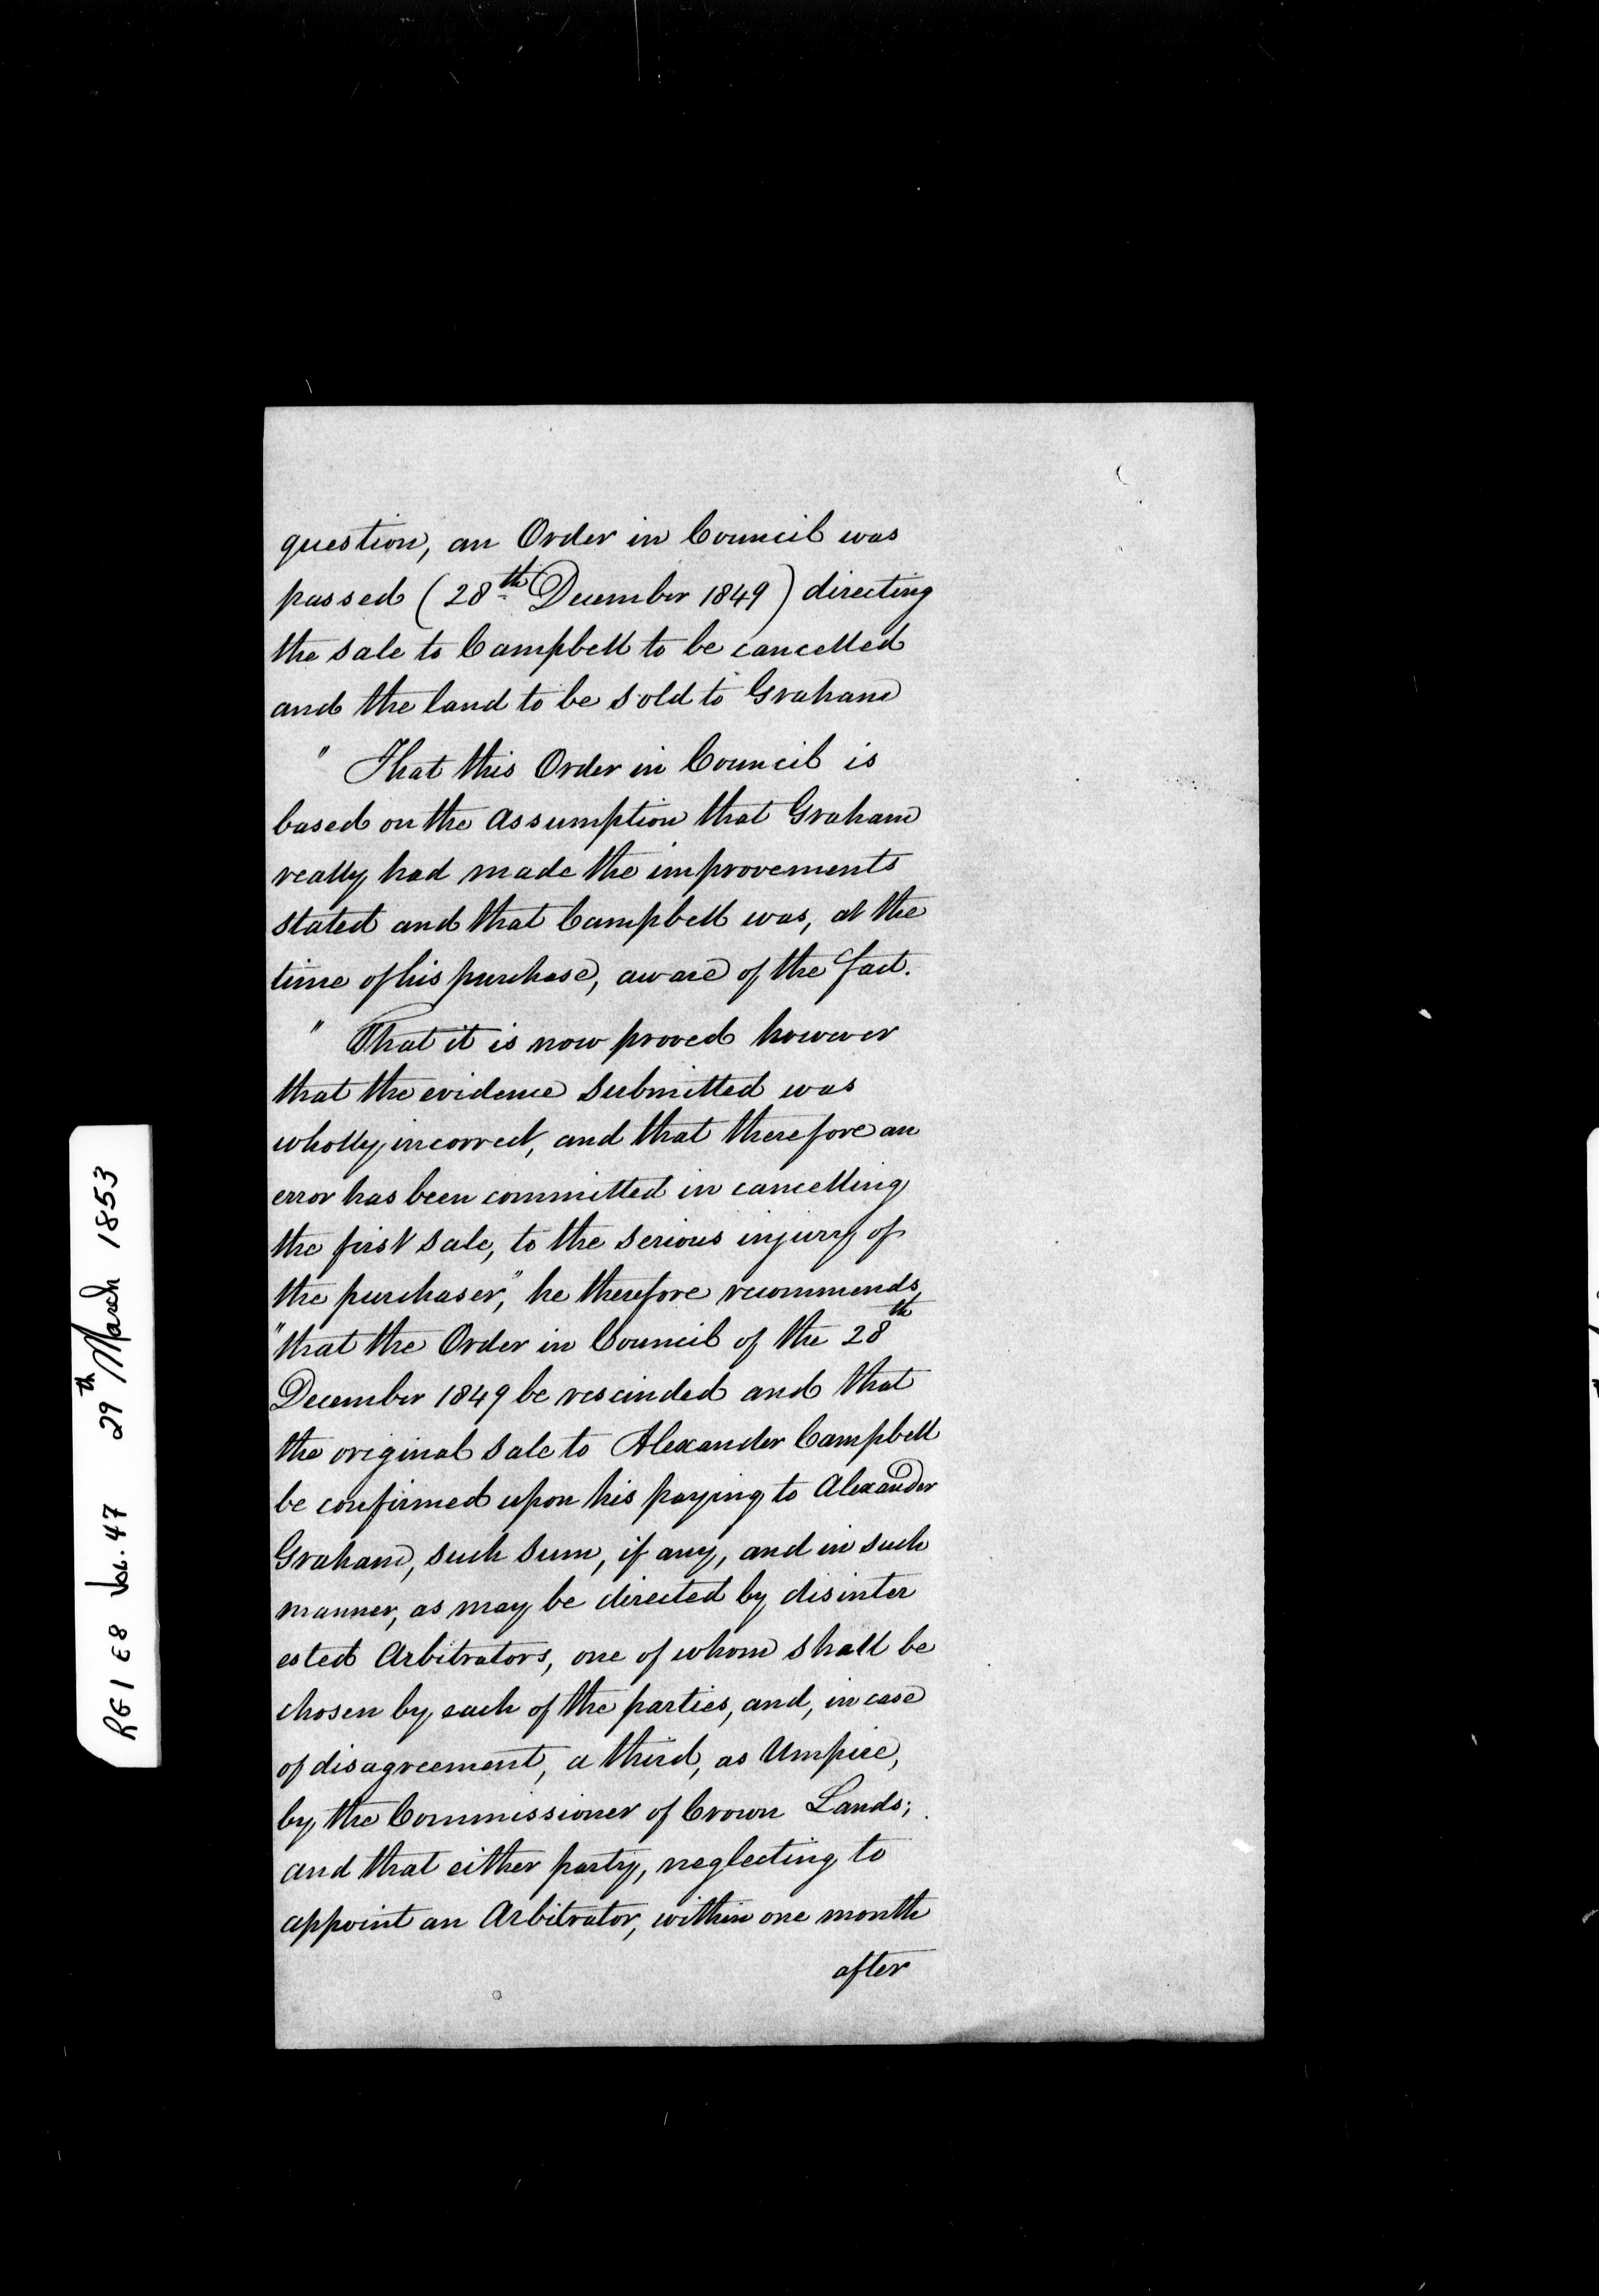 question, an Order in Council was
passed (28th December 1849) directing
the sale to Campbell to be cancelled
and the land to be sold to Graham
" That this Order in Council is
based on the assumption that Graham
really had made the improvements
stated and that Campbell was, at the
time of his purchase, aware of the fact.
" That it is now proved however
that the evidence submitted was
wholly incorrect, and that therefore an
error has been committed in cancelling
the first sale, to the serious injury of
the purchaser," he therefore recommends
"that the Order in Council of the 28th
December 1849 be rescinded and that
the original sale to Alexander Campbell
be confirmed upon his paying to Alexander
Graham, such sum, if any, and in such
manner, as may be directed by disinter
ested Arbitrators, one of whom shall be
chosen by each of the parties, and, in case
of disagreement, a third, as Umpire,
by the Commissioner of Crown Lands;
and that either party, neglecting to
appoint an Arbitrator, within one month
after
RG1 E8 Vol. 47 29th March 1853